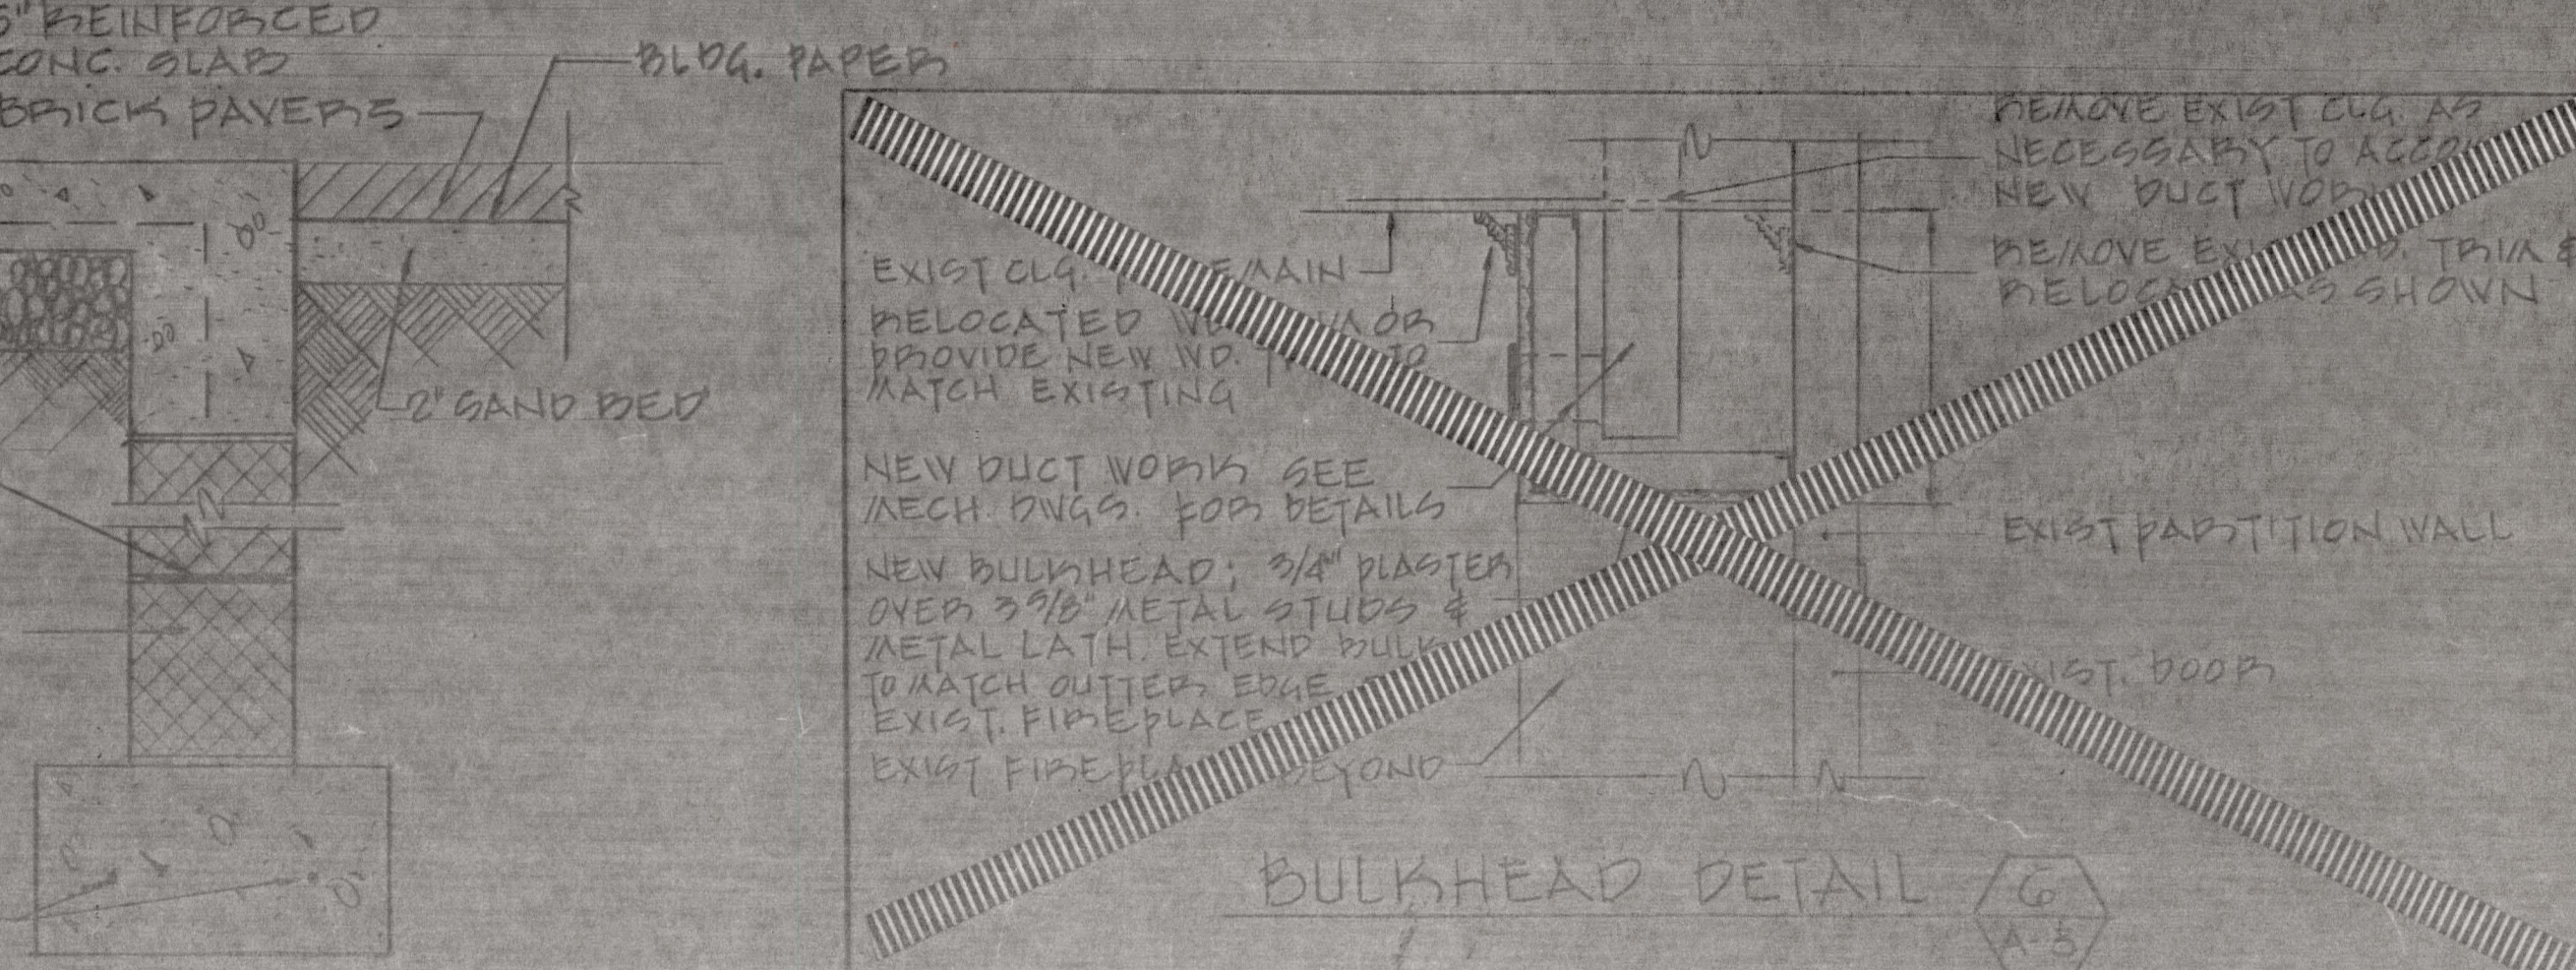 5" REINFORCED
CONC. SLAB
BRICK PAVERS
BLDG. PAPER
2" SAND BED
EXIST CLG. REMAIN
RELOCATED OR
PROVIDE NEW WD. TO
MATCH EXISTING
NEW DUCT WORK SEE
MECH. DWGS. FOR DETAILS
NEW BULKHEAD; 3/4" PLASTER
OVER 3 5/8" METAL STUDS &
METAL LATH. EXTEND
TO MATCH OUTTER EDGE
EXIST. FIREPLACE
EXIST FIREPLACE BEYOND
REMOVE EXIST CLG. AS
NECESSARY TO
NEW DUCT WORK
REMOVE TRIM &
RELOCATE AS SHOWN
EXIST PARTITION WALL
EXIST. DOOR
BULKHEAD DETAIL
6